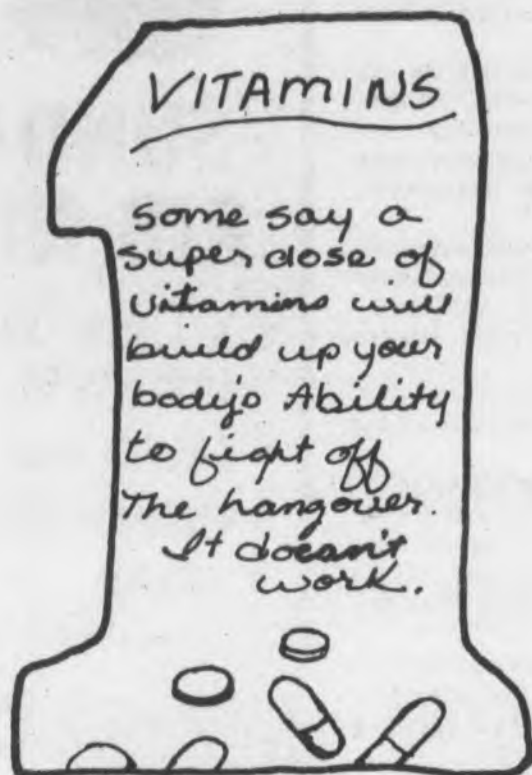 VITAMINS
some say a
super dose of
vitamins will
build up your
body's Ability
to fight off
The hangover.
It doesn't
work.